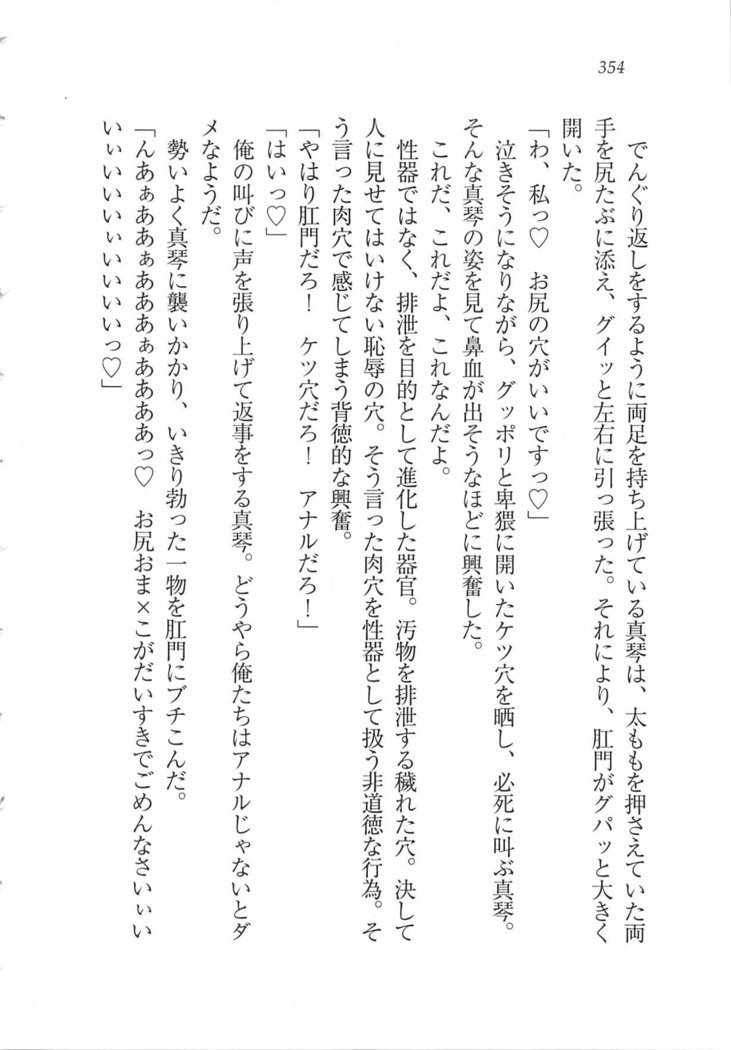 354
でんぐり返しをするように両足を持ち上げている真琴は、太ももを押さえていた両
手を尻たぶに添え、グイッと左右に引っ張った。それにより、肛門がグパッと大きく
開いた。
「わ、私っ♡　お尻の穴がいいですっ♡」
泣きそうになりながら、グッポリと卑猥に開いたケツ穴を晒し、必死に叫ぶ真琴。
そんな真琴の姿を見て鼻血が出そうなほどに興奮した。
これだ、これだよ、これなんだよ。
性器ではなく、排泄を目的として進化した器官。汚物を排泄する穢れた穴。決して
人に見せてはいけない恥辱の穴。そう言った肉穴を性器として扱う非道徳な行為。そ
う言った肉穴で感じてしまう背徳的な興奮。
「やはり肛門だろ！　ケツ穴だろ！　アナルだろ！」
「はいっ♡」
俺の叫びに声を張り上げて返事をする真琴。どうやら俺たちはアナルじゃないとダ
メなようだ。
勢いよく真琴に襲いかかり、いきり勃った一物を肛門にブチこんだ。
「んあぁああぁあああぁああああっ♡　お尻おま×こがだいすきでごめんなさいぃい
いぃいいいぃいいいいっ♡」